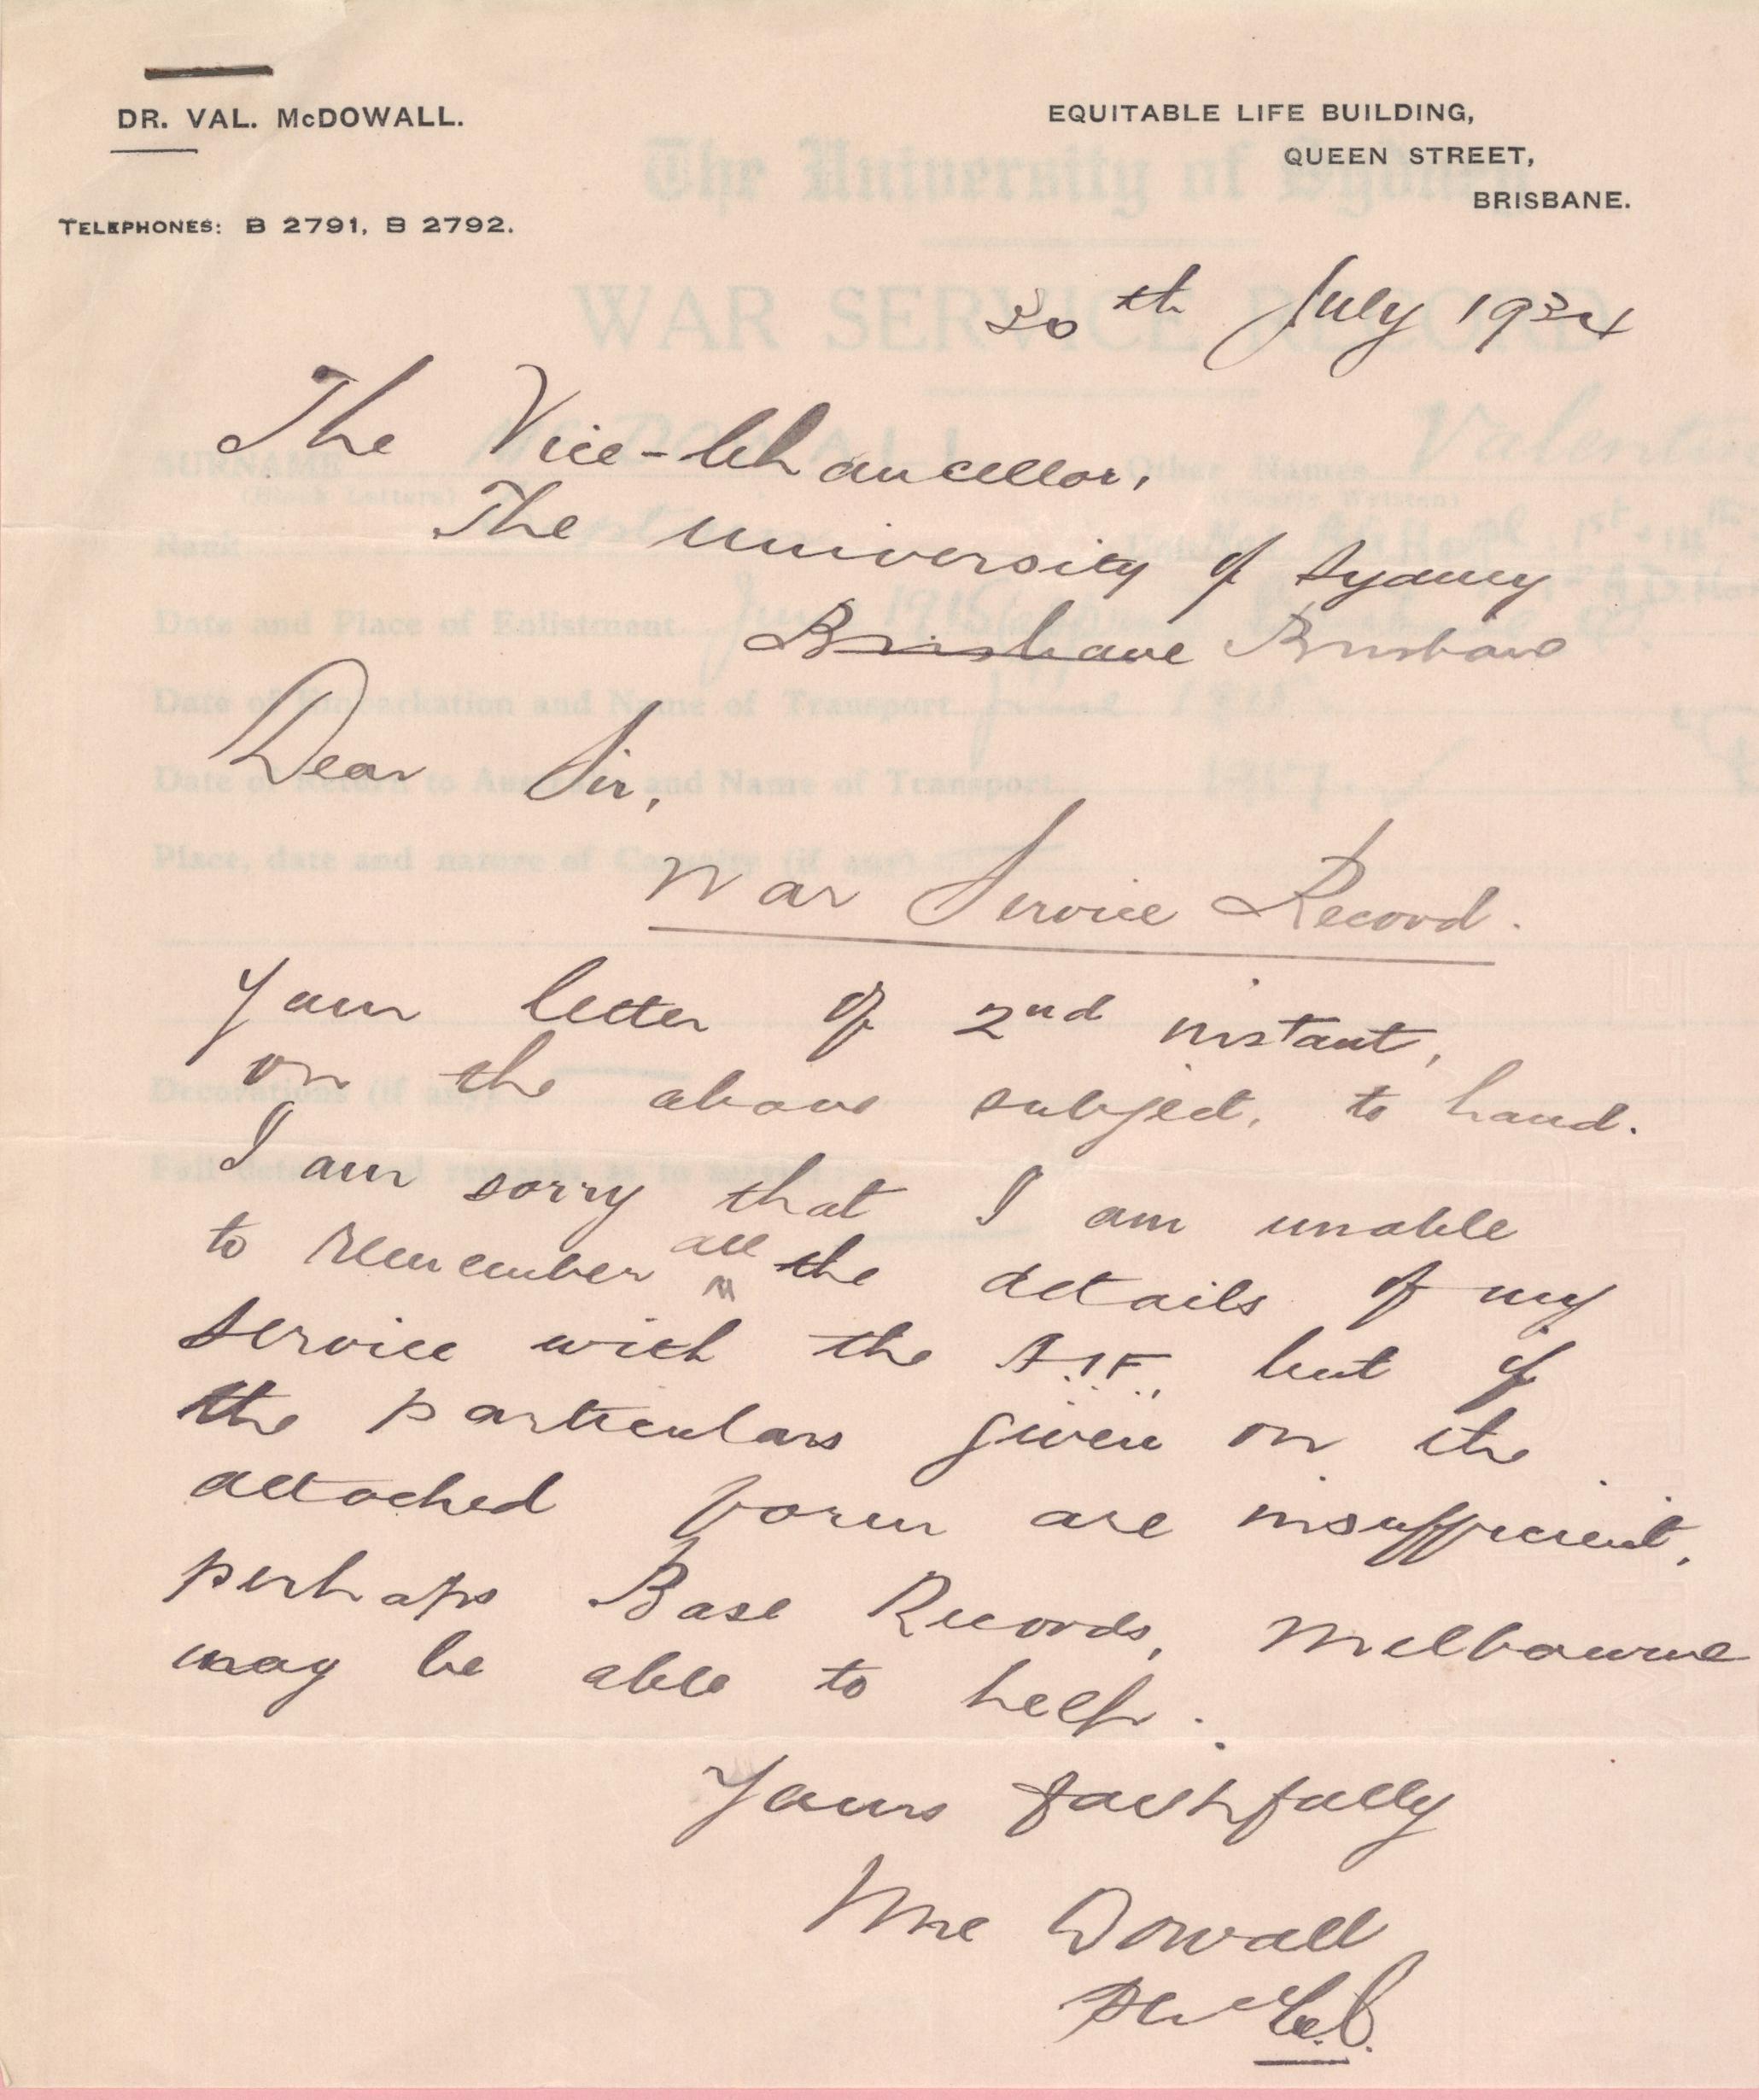 DR. VAL. McDOWALL.
TELEPHONES: B 2791, B 2792.
EQUITABLE LIFE BUILDING,
QUEEN STREET,
BRISBANE.
30th July 1934
The Vice-Chancellor,
The University of Sydney
Brisbane Brisbane
Dear Sir,
War Service Record.
Your letter of 2nd instant,
on the above subject, to hand.
I am sorry that I am unable
to remember all the details of my
service with the A.I.F., but if
the particulars given on the
attached form are insufficient,
perhaps Base Records, Melbourne
may be able to help.
Yours faithfully
VMcDowall
The University of Sydney
WAR SERVICE RECORD
SURNAME McDOWALL Other Names Valentine
(Block Letters)
Rank
Date and Place of Enlistment June 1915
Date of Embarkation and Name of Transport
Date of Return to Australia and Name of Transport 1917.
Place, date and nature of Casualty (if any)
Decorations (if any)